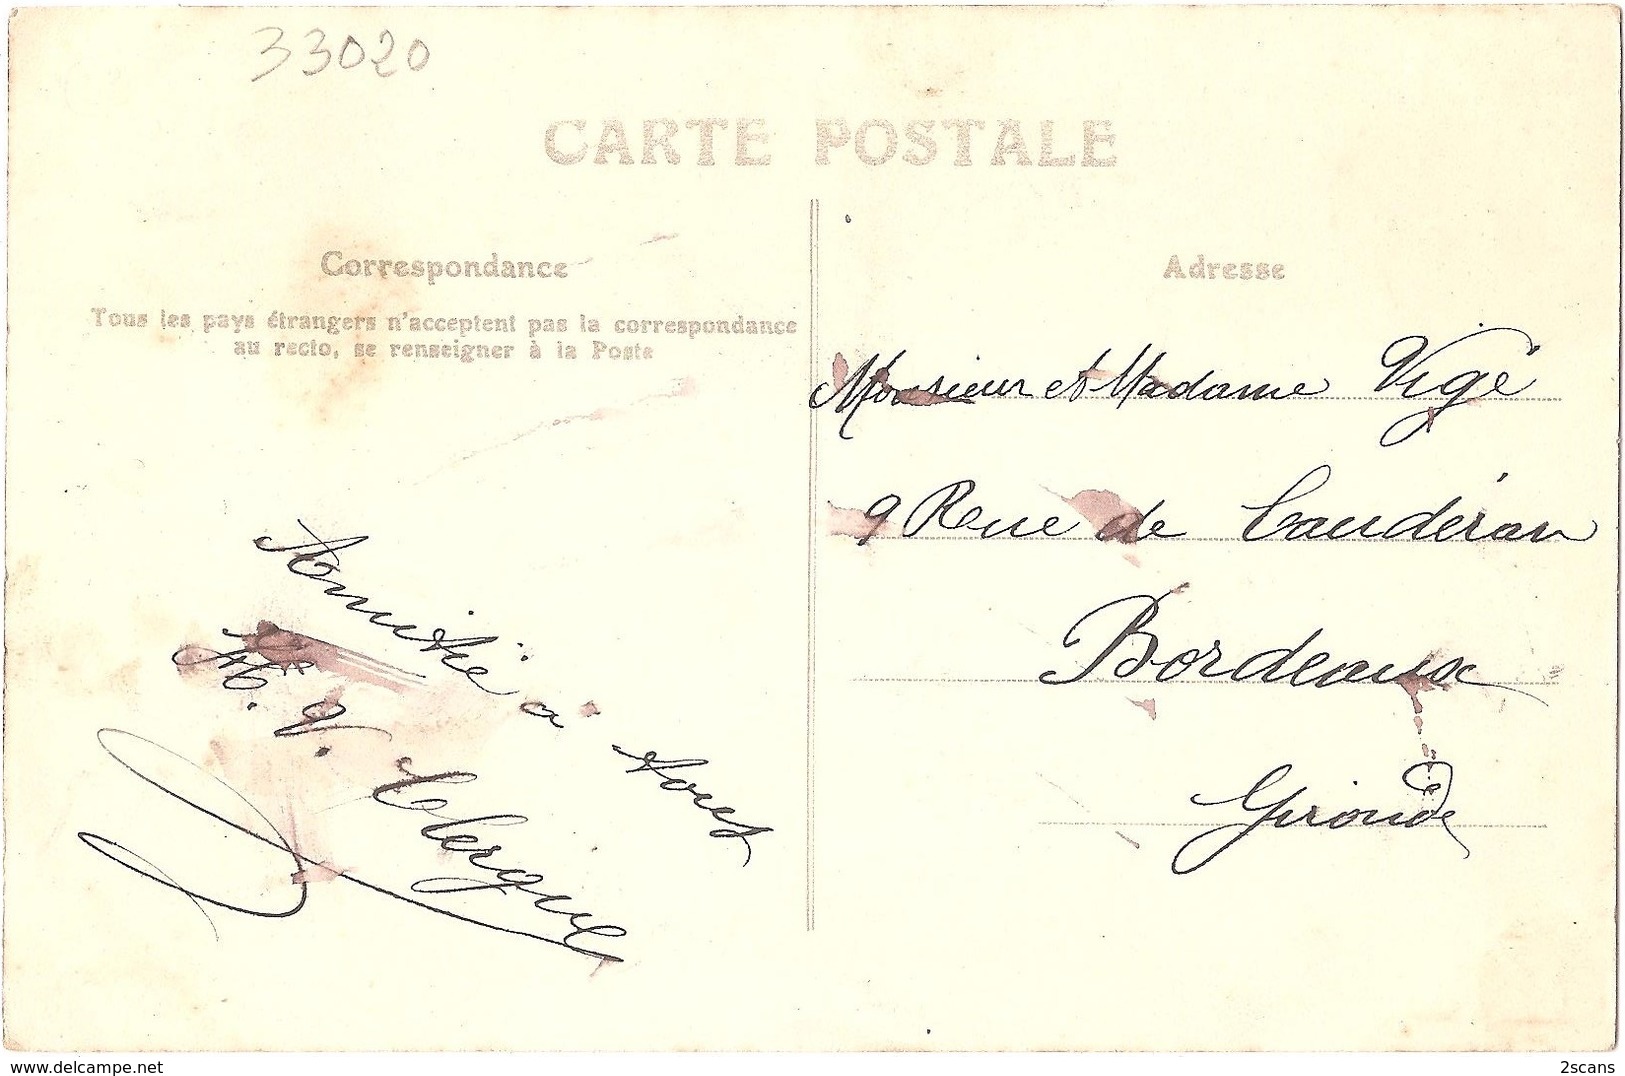 33020
CARTE POSTALE
Correspondance
Tous les pays étrangers n'acceptent pas la correspondance
au recto, se renseigner à la Poste
Amitié à tous
V. Clergue
Adresse
Monsieur et Madame Vigé
9 Rue de Caudéran
Bordeaux
Gironde
www.delcampe.net
2scans